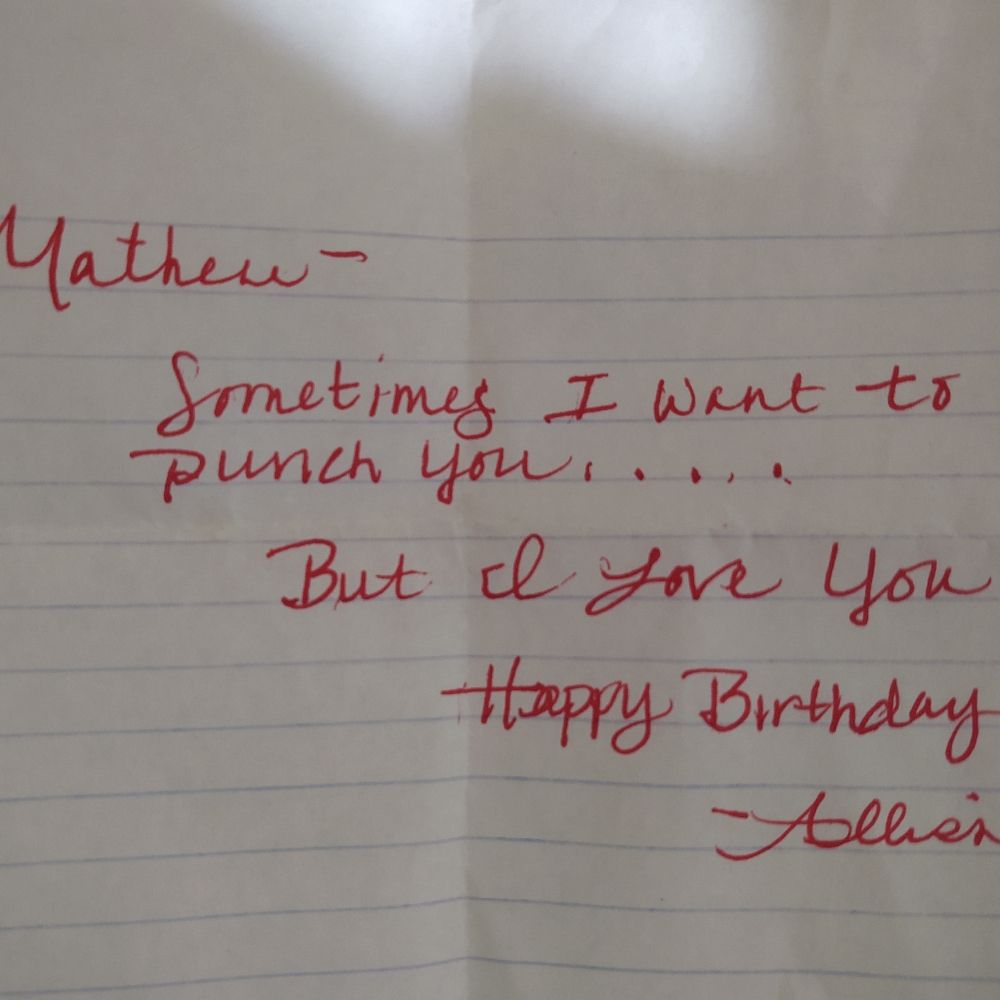 Mathew -
Sometimes I want to
punch you.....
But I Love You
Happy Birthday